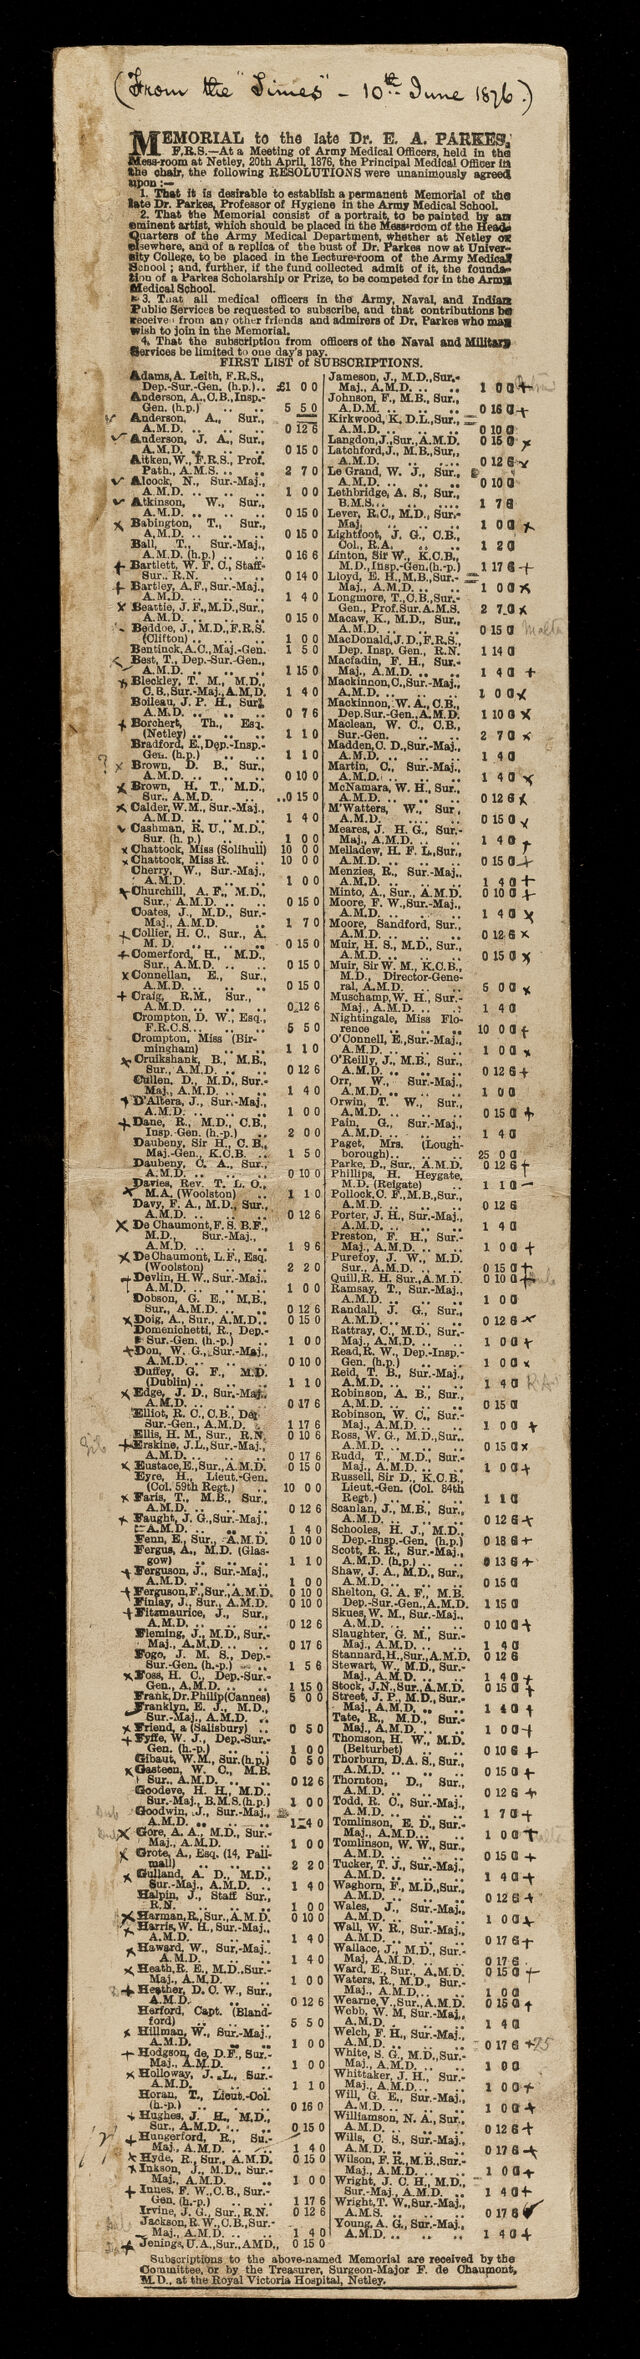 (From the "Times" - 10th June 1876.)
MEMORIAL to the late Dr. E. A. PARKES,
F.R.S.—At a Meeting of Army Medical Officers, held in the
Mess-room at Netley, 20th April, 1876, the Principal Medical Officer in
the chair, the following RESOLUTIONS were unanimously agreed
upon :—
1. That it is desirable to establish a permanent Memorial of the
late Dr. Parkes, Professor of Hygiene in the Army Medical School.
2. That the Memorial consist of a portrait, to be painted by an
eminent artist, which should be placed in the Mess-room of the Head-
Quarters of the Army Medical Department, whether at Netley or
elsewhere, and of a replica of the bust of Dr. Parkes now at Univer-
sity College, to be placed in the Lecture-room of the Army Medical
School ; and, further, if the fund collected admit of it, the founda-
tion of a Parkes Scholarship or Prize, to be competed for in the Army
Medical School.
3. That all medical officers in the Army, Naval, and Indian
Public Services be requested to subscribe, and that contributions be
received from any other friends and admirers of Dr. Parkes who may
wish to join in the Memorial.
4. That the subscription from officers of the Naval and Military
Services be limited to one day's pay.
FIRST LIST of SUBSCRIPTIONS.
Adams, A. Leith, F.R.S.,
Dep.-Sur.-Gen. (h.p.).. £1 0 0
Anderson, A., C.B., Insp.-
Gen. (h.p.) .. .. 5 5 0
Anderson, A., Sur.,
A.M.D. .. .. .. 0 12 6
Anderson, J. A., Sur.,
A.M.D. .. .. .. 0 15 0
Aitken, W., F.R.S., Prof.
Path., A.M.S. .. .. 2 7 0
Alcock, N., Sur.-Maj.,
A.M.D. .. .. .. 1 0 0
Atkinson, W., Sur.,
A.M.D. .. .. .. 0 15 0
Babington, T., Sur.,
A.M.D. .. .. .. 0 15 0
Ball, T., Sur.-Maj.,
A.M.D. (h.p.) .. .. 0 16 6
Bartlett, W. F. C., Staff-
Sur., R.N. .. .. 0 14 0
Bartley, A. F., Sur.-Maj.,
A.M.D. .. .. .. 1 4 0
Beattie, J. F., M.D., Sur.,
A.M.D. .. .. .. 0 15 0
Beddoe, J., M.D., F.R.S.
(Clifton) .. .. 1 0 0
Bentinck, A.C., Maj.-Gen. 1 5 0
Best, T., Dep.-Sur.-Gen.,
A.M.D. .. .. .. 1 15 0
Bleckley, T. M., M.D.,
C.B., Sur.-Maj., A.M.D. 1 4 0
Boileau, J. P. H., Sur.,
A.M.D. .. .. .. 0 7 6
Borchert, Th., Esq.
(Netley) .. .. .. 1 1 0
Bradford, E., Dep.-Insp.-
Gen. (h.p.) .. .. 1 1 0
Brown, D. B., Sur.,
A.M.D. .. .. .. 0 10 0
Brown, H. T., M.D.,
Sur., A.M.D. .. .. 0 15 0
Calder, W.M., Sur.-Maj.,
A.M.D. .. .. .. 1 4 0
Cashman, R. U., M.D.,
Sur. (h.p.) .. .. 1 0 0
Chattock, Miss (Solihull) 10 0 0
Chattock, Miss R. .. 10 0 0
Cherry, W., Sur.-Maj.,
A.M.D. .. .. .. 1 0 0
Churchill, A. F., M.D.,
Sur., A.M.D. .. .. 0 15 0
Coates, J., M.D., Sur.-
Maj., A.M.D. .. .. 1 7 0
Collier, H. C., Sur., A.
M. D. .. .. .. 0 15 0
Comerford, H., M.D.,
Sur., A.M.D. .. .. 0 15 0
Connellan, E., Sur.,
A.M.D. .. .. .. 0 15 0
Craig, R.M., Sur.,
A.M.D. .. .. .. 0 12 6
Crompton, D. W., Esq.,
F.R.C.S. .. .. .. 5 5 0
Crompton, Miss (Bir-
mingham) .. .. 1 1 0
Cruikshank, B., M.B.,
Sur., A.M.D. .. .. 0 12 6
Cullen, D., M.D., Sur.-
Maj., A.M.D. .. .. 1 4 0
D'Altera, J., Sur.-Maj.,
A.M.D. .. .. .. 1 0 0
Dane, R., M.D., C.B.,
Insp.-Gen. (h.-p.) .. 2 0 0
Daubeny, Sir H., C.B.,
Maj.-Gen., K.C.B. .. 1 5 0
Daubeny, C. A., Sur.,
A.M.D. .. .. .. 0 10 0
Davies, Rev. T. L. O.,
M.A. (Woolston) .. 1 1 0
Davy, F. A., M.D., Sur.,
A.M.D. .. .. .. 0 12 6
De Chaumont, F. S. B.F.,
M.D., Sur.-Maj.,
A.M.D. .. .. .. 1 9 6
De Chaumont, L.F., Esq.
(Woolston) .. .. 2 2 0
Devlin, H.W., Sur.-Maj.,
A.M.D. .. .. .. 1 0 0
Dobson, G. E., M.B.,
Sur., A.M.D. .. .. 0 12 6
Doig, A., Sur., A.M.D. .. 0 15 0
Domenichetti, R., Dep.-
Sur.-Gen. (h.-p.) .. 1 0 0
Don, W. G., Sur.-Maj.,
A.M.D. .. .. .. 0 10 0
Duffey, G. F., M.D.
(Dublin) .. .. .. 1 1 0
Edge, J. D., Sur.-Maj.,
A.M.D. .. .. .. 0 17 6
Elliot, R. C., C.B., Dep.
Sur.-Gen., A.M.D. .. 1 17 6
Ellis, H. M., Sur., R.N. 0 10 6
Erskine, J.L., Sur.-Maj.,
A.M.D. .. .. .. 0 17 6
Eustace, E., Sur., A.M.D. 0 15 0
Eyre, H., Lieut.-Gen.
(Col. 59th Regt.) .. 10 0 0
Faris, T., M.B., Sur.,
A.M.D. .. .. .. 0 12 6
Faught, J. G., Sur.-Maj.,
A.M.D. .. .. .. 1 4 0
Fenn, E., Sur., A.M.D. 0 10 0
Fergus, A., M.D. (Glas-
gow) .. .. .. 1 1 0
Ferguson, J., Sur.-Maj.,
A.M.D. .. .. .. 1 0 0
Ferguson, F., Sur., A.M.D. 0 10 0
Finlay, J., Sur., A.M.D. 0 10 0
Fitzmaurice, J., Sur.,
A.M.D. .. .. .. 0 12 6
Fleming, J., M.D., Sur.-
Maj., A.M.D. .. .. 0 17 6
Fogo, J. M. S., Dep.-
Sur.-Gen. (h.-p.) .. 1 5 6
Foss, H. C., Dep.-Sur.-
Gen., A.M.D. .. .. 1 15 0
Frank, Dr. Philip (Cannes) 5 0 0
Franklyn, E. J., M.D.,
Sur.-Maj., A.M.D. ..
Friend, a (Salisbury) .. 0 5 0
Fyffe, W. J., Dep.-Sur.-
Gen. (h.-p.) .. .. 1 0 0
Gibaut, W.M., Sur.(h.p.) 0 5 0
Gasteen, W. C., M.B.
Sur., A.M.D. .. .. 0 12 6
Goodeve, H. H., M.D.,
Sur.-Maj., B.M.S.(h.p.) 1 0 0
Goodwin, J., Sur.-Maj.,
A.M.D. .. .. .. 1 4 0
Gore, A. A., M.D., Sur.-
Maj., A.M.D. .. 1 0 0
Grote, A., Esq. (14, Pall-
mall) .. .. .. 2 2 0
Gulland, A. D., M.D.,
Sur.-Maj., A.M.D. .. 1 4 0
Halpin, J., Staff Sur.,
R.N. .. .. .. 1 0 0
Harman, R., Sur., A.M.D. 0 10 0
Harris, W. H., Sur.-Maj.,
A.M.D. .. .. .. 1 4 0
Haward, W., Sur.-Maj.,
A.M.D. .. .. .. 1 4 0
Heath, R. E., M.D., Sur.-
Maj., A.M.D. .. .. 1 0 0
Heather, D. C. W., Sur.,
A.M.D. .. .. .. 0 12 6
Herford, Capt. (Bland-
ford) .. .. .. 5 5 0
Hillman, W., Sur.-Maj.,
A.M.D. .. .. .. 1 0 0
Hodgson, de, D.F., Sur.-
Maj., A.M.D. .. .. 1 0 0
Holloway, J. L., Sur.-
A.M.D. .. .. .. 1 1 0
Horan, T., Lieut.-Col.
(h.-p.) .. .. .. 0 16 0
Hughes, J. H., M.D.,
Sur., A.M.D. .. .. 0 15 0
Hungerford, R., Su.-
Maj., A.M.D. .. .. 1 4 0
Hyde, R., Sur., A.M.D. 0 15 0
Inkson, J., M.D., Sur.-
Maj., A.M.D. .. .. 1 0 0
Innes, F. W., C.B., Sur.-
Gen. (h.-p.) .. .. 1 17 6
Irvine, J. G., Sur., R.N. 0 12 6
Jackson, R.W., C.B., Sur.-
Maj., A.M.D. .. .. 1 4 0
Jenings, U.A., Sur., AMD., 0 15 0
Jameson, J., M.D., Sur.-
Maj., A.M.D. .. .. 1 0 0
Johnson, F., M.B., Sur.,
A.D.M. .. .. .. 0 16 0
Kirkwood, K. D.L., Sur.,
A.M.D. .. .. .. 0 10 0
Langdon, J., Sur., A.M.D. 0 15 0
Latchford, J., M.B., Sur.,
A.M.D. .. .. .. 0 12 6
Le Grand, W. J., Sur.,
A.M.D. .. .. .. 0 10 0
Lethbridge, A. S., Sur.,
B.M.S. .. .. .. 1 7 6
Lever, R.C., M.D., Sur.-
Maj. .. .. .. 1 0 0
Lightfoot, J. G., C.B.,
Col., R.A. .. .. 1 2 0
Linton, Sir W., K.C.B.,
M.D., Insp.-Gen.(h.-p.) 1 17 6
Lloyd, E. H., M.B., Sur.-
Maj., A.M.D. .. .. 1 0 0
Longmore, T., C.B., Sur.-
Gen., Prof. Sur. A.M.S. 2 7 0
Macaw, K., M.D., Sur.,
A.M.D. .. .. .. 0 15 0 Malta
MacDonald, J.D., F.R.S.,
Dep. Insp. Gen., R.N. 1 14 0
Macfadin, F. H., Sur.-
Maj., A.M.D. .. .. 1 4 0
Mackinnon, C., Sur.-Maj.,
A.M.D. .. .. .. 1 0 0
Mackinnon, W. A., C.B.,
Dep. Sur.-Gen., A.M.D. 1 10 0
Maclean, W. C., C.B.,
Sur.-Gen. .. .. 2 7 0
Madden, C. D., Sur.-Maj.,
A.M.D. .. .. .. 1 4 0
Martin, C., Sur.-Maj.,
A.M.D. .. .. .. 1 4 0
McNamara, W. H., Sur.,
A.M.D. .. .. .. 0 12 6
M'Watters, W., Sur.,
A.M.D. .. .. .. 0 15 0
Meares, J. H. G., Sur.-
Maj., A.M.D. .. .. 1 4 0
Melladew, H. F. L., Sur.,
A.M.D. .. .. .. 0 15 0
Menzies, R., Sur.-Maj.,
A.M.D. .. .. .. 1 4 0
Minto, A., Sur., A.M.D. 0 10 0
Moore, F. W., Sur.-Maj.,
A.M.D. .. .. .. 1 4 0
Moore, Sandford, Sur.,
A.M.D. .. .. .. 0 12 6
Muir, H. S., M.D., Sur.,
A.M.D. .. .. .. 0 15 0
Muir, Sir W. M., K.C.B.,
M.D., Director-Gene-
ral, A.M.D. .. .. 5 0 0
Muschamp, W. H., Sur.-
Maj., A.M.D. .. .. 1 4 0
Nightingale, Miss Flo-
rence .. .. .. 10 0 0
O'Connell, E., Sur.-Maj.,
A.M.D. .. .. .. 1 0 0
O'Reilly, J., M.B., Sur.,
A.M.D. .. .. .. 0 12 6
Orr, W., Sur.-Maj.,
A.M.D. .. .. .. 1 0 0
Orwin, T. W., Sur.,
A.M.D. .. .. .. 0 15 0
Pain, G., Sur.-Maj.,
A.M.D. .. .. .. 1 4 0
Paget, Mrs. (Lough-
borough).. .. .. 25 0 0
Parke, D., Sur., A.M.D. 0 12 6
Phillips, H. Heygate,
M.D. (Reigate) .. 1 1 0
Pollock, C. F., M.B., Sur.,
A.M.D. .. .. .. 0 12 6
Porter, J. H., Sur.-Maj.,
A.M.D. .. .. .. 1 4 0
Preston, F. H., Sur.-
Maj., A.M.D. .. .. 1 0 0
Purefoy, J. W., M.D.
Sur., A.M.D. .. .. 0 15 0
Quill, R. H. Sur., A.M.D. 0 10 0
Ramsay, T., Sur.-Maj.,
A.M.D. .. .. .. 1 0 0
Randall, J. G., Sur.,
A.M.D. .. .. .. 0 12 6
Rattray, C., M.D., Sur.-
Maj., A.M.D. .. .. 1 0 0
Read, R. W., Dep.-Insp.-
Gen. (h.p.) .. .. 1 0 0
Reid, T. B., Sur.-Maj.,
A.M.D. .. .. .. 1 4 0
Robinson, A. B., Sur.,
A.M.D. .. .. .. 0 15 0
Robinson, W. C., Sur.-
Maj., A.M.D. .. .. 1 0 0
Ross, W. G., M.D., Sur.,
A.M.D. .. .. .. 0 15 0
Rudd, T., M.D., Sur.-
Maj., A.M.D. .. .. 1 0 0
Russell, Sir D., K.C.B.,
Lieut.-Gen. (Col. 84th
Regt.) .. .. .. 1 1 0
Scanlan, J., M.B., Sur.,
A.M.D. .. .. .. 0 12 6
Schooles, H. J., M.D.,
Dep.-Insp.-Gen. (h.p.) 0 18 6
Scott, R. R., Sur.-Maj.,
A.M.D. (h.p.) .. .. 0 13 6
Shaw, J. A., M.D., Sur.,
A.M.D. .. .. .. 0 15 0
Shelton, G. A. F., M.B.
Dep.-Sur.-Gen., A.M.D. 1 15 0
Skues, W. M., Sur.-Maj.,
A.M.D. .. .. .. 0 10 0
Slaughter, G. M., Sur.-
Maj., A.M.D. .. .. 1 4 0
Stannard, H., Sur., A.M.D. 0 12 6
Stewart, W., M.D., Sur.-
Maj., A.M.D. .. .. 1 4 0
Stock, J.N., Sur., A.M.D. 0 15 0
Street, J. P., M.D., Sur.-
Maj., A.M.D. .. .. 1 4 0
Tate, R., M.D., Sur.-
Maj., A.M.D. .. .. 1 0 0
Thomson, H. W., M.D.
(Belturbet) .. .. 0 10 6
Thorburn, D. A. S., Sur.,
A.M.D. .. .. .. 0 15 0
Thornton, D., Sur.,
A.M.D. .. .. .. 0 12 6
Todd, R. C., Sur.-Maj.,
A.M.D. .. .. .. 1 7 0
Tomlinson, E. D., Sur.-
Maj., A.M.D. .. .. 1 0 0 Malta
Tomlinson, W. W., Sur.,
A.M.D. .. .. .. 0 15 0
Tucker, T. J., Sur.-Maj.,
A.M.D. .. .. .. 1 4 0
Waghorn, F., M.D., Sur.,
A.M.D. .. .. .. 0 12 6
Wales, J., Sur.-Maj.,
A.M.D. .. .. .. 1 0 0
Wall, W. R., Sur.-Maj.,
A.M.D. .. .. .. 0 17 6
Wallace, J., M.D., Sur.-
Maj, A.M.D. .. .. 0 17 6
Ward, E., Sur., A.M.D. 0 15 0
Waters, R., M.D., Sur.-
Maj., A.M.D. .. .. 1 0 0
Wearne, V., Sur., A.M.D. 0 15 0
Webb, W. M., Sur.-Maj.,
A.M.D. .. .. .. 1 4 0
Welch, F. H., Sur.-Maj.,
A.M.D. .. .. .. 0 17 6
White, S. G., M.D., Sur.-
Maj., A.M.D. .. .. 1 0 0
Whittaker, J. H., Sur.-
Maj., A.M.D. .. .. 1 0 0
Will, G. E., Sur.-Maj.,
A.M.D. .. .. .. 1 0 0
Williamson, N. A., Sur.,
A.M.D. .. .. .. 0 12 6
Wills, C. S., Sur.-Maj.,
A.M.D. .. .. .. 0 17 6
Wilson, F. R., M.B., Sur.-
Maj., A.M.D. .. .. 1 0 0
Wright, J. C. H., M.D.,
Sur.-Maj., A.M.D. .. 1 4 0
Wright, T. W., Sur.-Maj.,
A.M.S. .. .. .. 0 17 6
Young, A. G., Sur.-Maj.,
A.M.D. .. .. .. 1 4 0
Subscriptions to the above-named Memorial are received by the
Committee, or by the Treasurer, Surgeon-Major F. de Chaumont,
M.D., at the Royal Victoria Hospital, Netley.